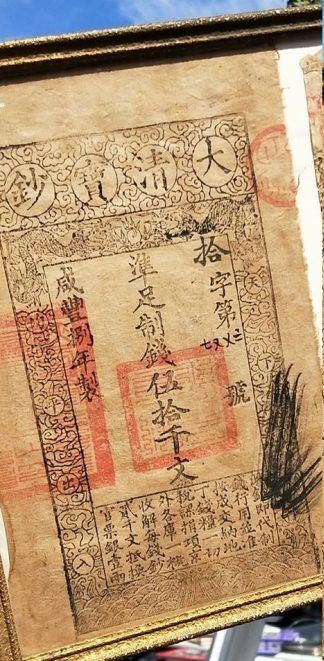 大清寶鈔
天
拾字第
號
準足制錢伍拾千文
咸豐捌年製
平出入
即代制
錢行用並准
成交納地
丁錢糧一切
稅課捐項京
外各庫一概
收解每錢鈔
貳千文抵換
官票銀壹兩